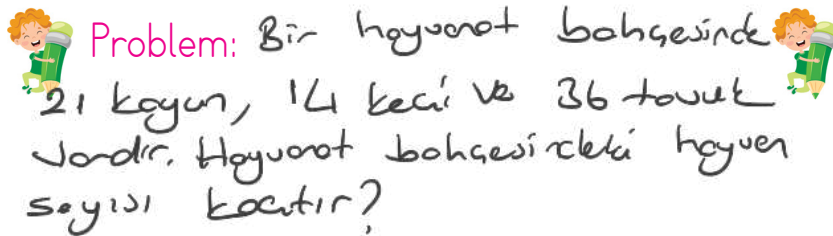 Problem: Bir hayvanat bahçesinde
21 koyun, 14 keçi ve 36 tavuk
vardır. Hayvanat bahçesindeki hayvan
sayısı kaçtır?